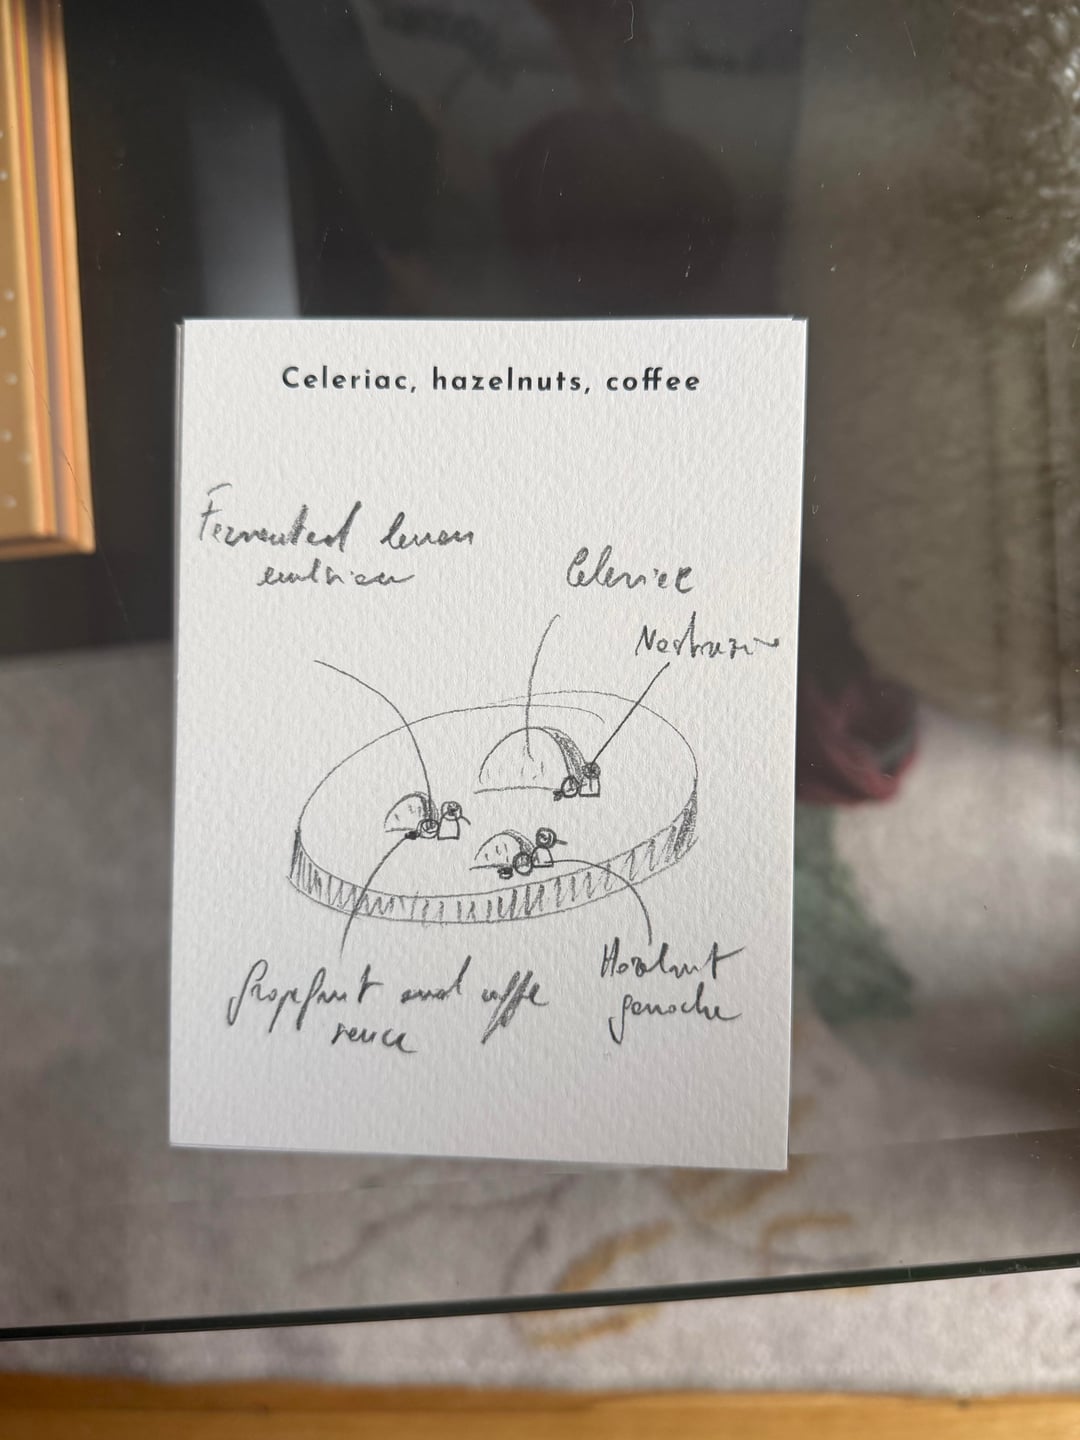 Celeriac, hazelnuts, coffee
Fermented lemon
emulsion
Celeriac
Nasturzium
Grapefruit and coffe
sauce
Hazelnut
ganache